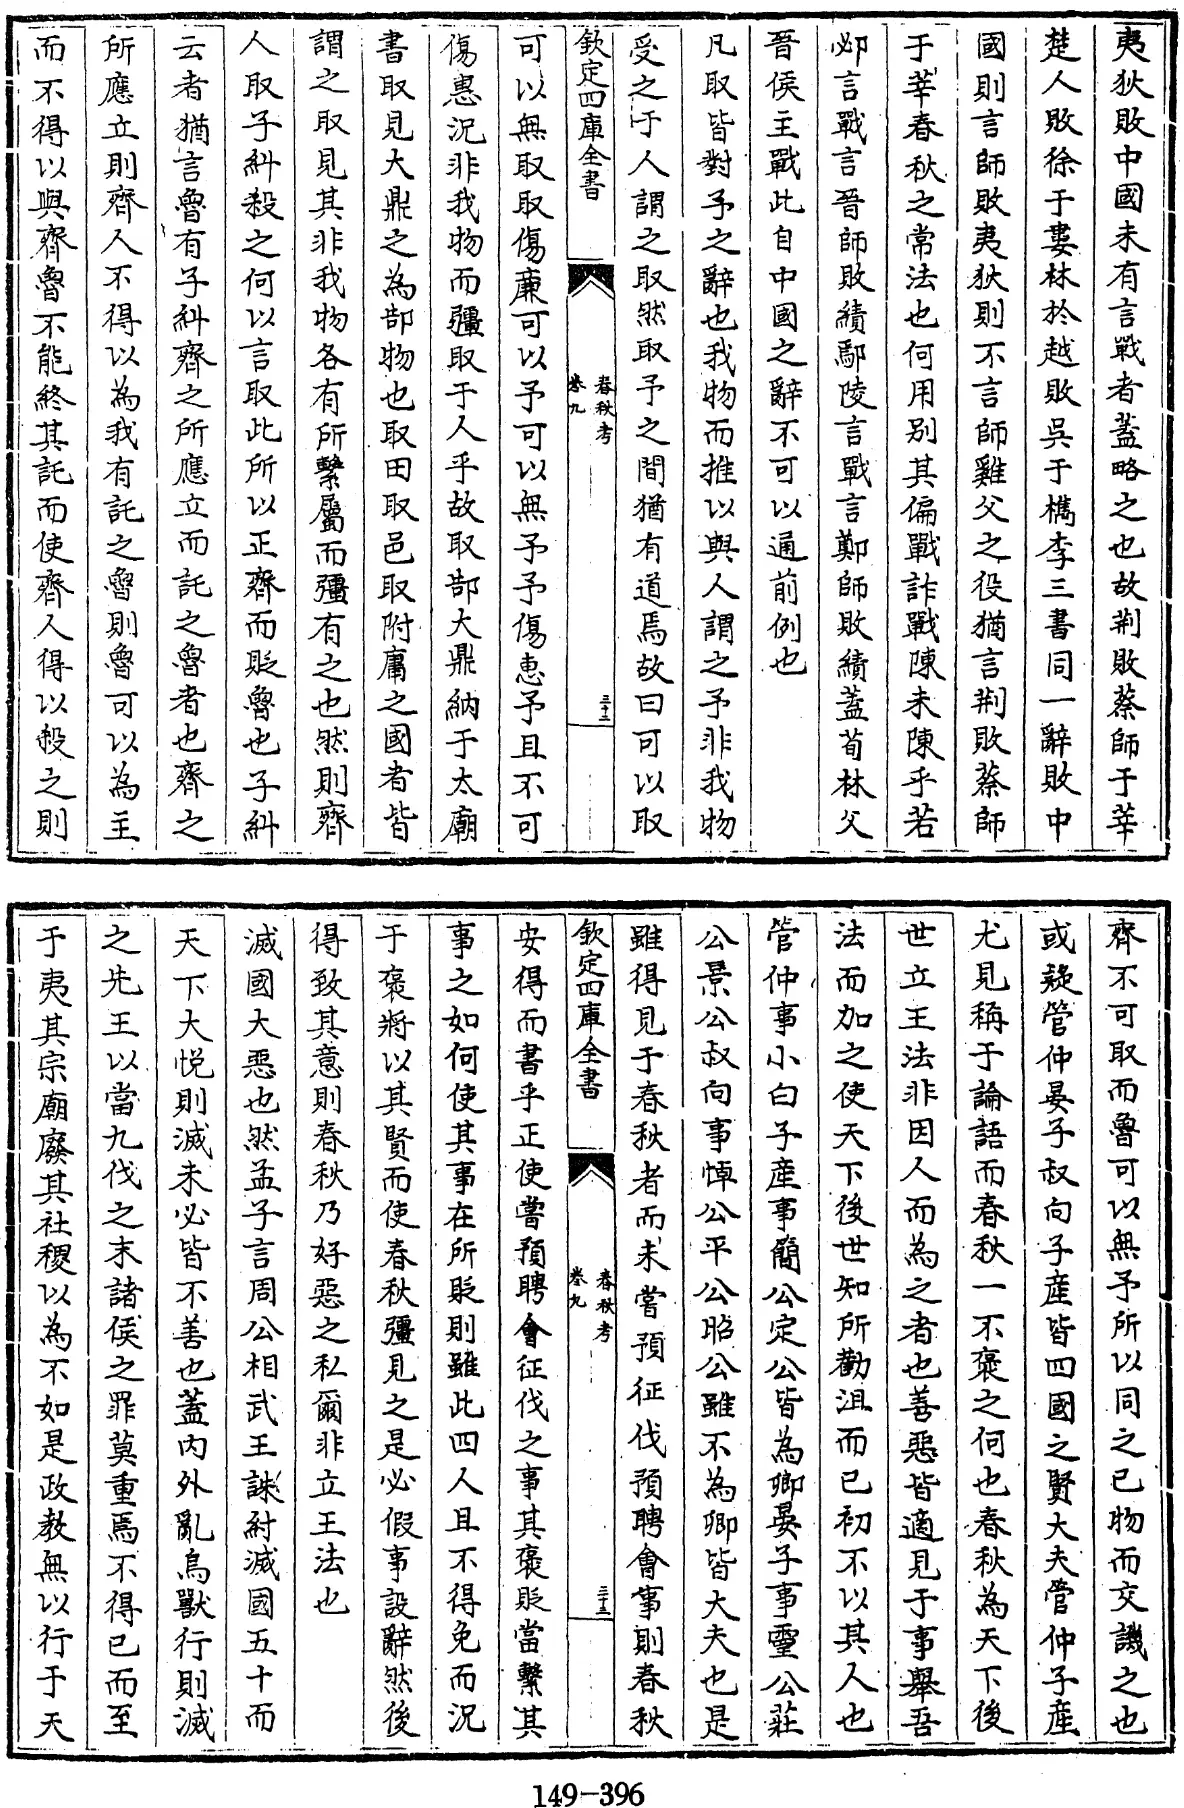 夷狄敗中國未有言戰者蓋略之也故荆敗蔡師于莘
楚人敗徐于婁林於越敗吳于檇李三書同一辭敗中
國則言師敗夷狄則不言師雞父之役猶言荆敗蔡師
于莘春秋之常法也何用別其偏戰詐戰陳未陳乎若
邲言戰言晉師敗績鄢陵言戰言鄭師敗績蓋荀林父
晉侯主戰此自中國之辭不可以通前例也
凡取皆對予之辭也我物而推以與人謂之予非我物
受之于人謂之取然取予之間猶有道焉故曰可以取
欽定四庫全書
春秋考
卷九
三十二
可以無取取傷廉可以予可以無予予傷惠予且不可
傷惠況非我物而彊取于人乎故取郜大鼎納于太廟
書取見大鼎之為郜物也取田取邑取附庸之國者皆
謂之取見其非我物各有所繫屬而彊有之也然則齊
人取子糾殺之何以言取此所以正齊而貶魯也子糾
云者猶言魯有子糾齊之所應立而託之魯者也齊之
所應立則齊人不得以為我有託之魯則魯可以為主
而不得以與齊魯不能終其託而使齊人得以殺之則
齊不可取而魯可以無予所以同之已物而交譏之也
或疑管仲晏子叔向子產皆四國之賢大夫管仲子產
尤見稱于論語而春秋一不褒之何也春秋為天下後
世立王法非因人而為之者也善惡皆適見于事舉吾
法而加之使天下後世知所勸沮而已初不以其人也
管仲事小白子產事簡公定公皆為卿晏子事靈公莊
公景公叔向事悼公平公昭公雖不為卿皆大夫也是
雖得見于春秋者而未嘗預征伐預聘會事則春秋
欽定四庫全書
春秋考
卷九
三十三
安得而書乎正使嘗預聘會征伐之事其褒貶當繫其
事之如何使其事在所貶則雖此四人且不得免而況
于褒將以其賢而使春秋彊見之是必假事設辭然後
得致其意則春秋乃好惡之私爾非立王法也
滅國大惡也然孟子言周公相武王誅紂滅國五十而
天下大悅則滅未必皆不善也蓋內外亂鳥獸行則滅
之先王以當九伐之末諸侯之罪莫重焉不得已而至
于夷其宗廟廢其社稷以為不如是政教無以行于天
149-396